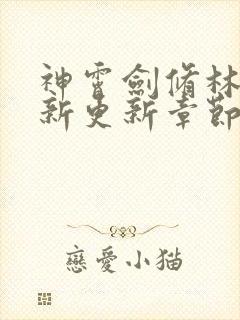 神霄劍脩林
新更新章節
戀愛小猫